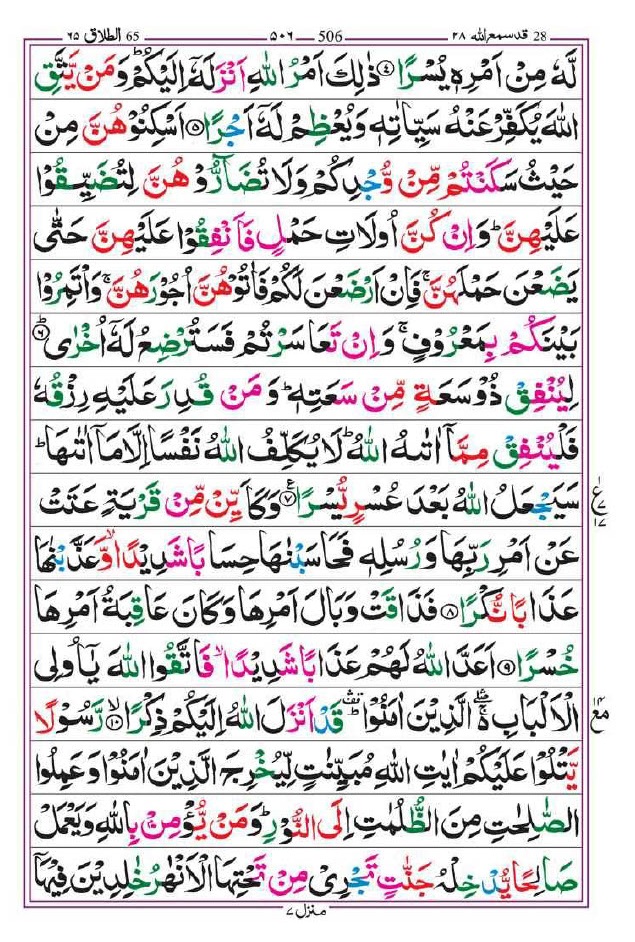 28 قد سمع الله ٢٨ 506 ٥٠٦ 65 الطلاق ٦٥
لَّهٗ مِنْ اَمْرِهٖ يُسْرًا ﴿٤﴾ ذٰلِكَ اَمْرُ اللّٰهِ اَنْزَلَهٗۤ اِلَيْكُمْ ؕ وَمَنْ يَّتَّقِ
اللّٰهَ يُكَفِّرْ عَنْهُ سَيِّاٰتِهٖ وَيُعْظِمْ لَهٗۤ اَجْرًا ﴿٥﴾ اَسْكِنُوْهُنَّ مِنْ
حَيْثُ سَكَنْتُمْ مِّنْ وُّجْدِكُمْ وَلَا تُضَآرُّوْهُنَّ لِتُضَيِّقُوْا
عَلَيْهِنَّ ؕ وَاِنْ كُنَّ اُولَاتِ حَمْلٍ فَاَنْفِقُوْا عَلَيْهِنَّ حَتّٰى
يَضَعْنَ حَمْلَهُنَّ ۚ فَاِنْ اَرْضَعْنَ لَكُمْ فَاٰتُوْهُنَّ اُجُوْرَهُنَّ ۚ وَاْتَمِرُوْا
بَيْنَكُمْ بِمَعْرُوْفٍ ۚ وَاِنْ تَعَاسَرْتُمْ فَسَتُرْضِعُ لَهٗۤ اُخْرٰى ﴿٦﴾ؕ
لِيُنْفِقْ ذُوْ سَعَةٍ مِّنْ سَعَتِهٖ ؕ وَمَنْ قُدِرَ عَلَيْهِ رِزْقُهٗ
فَلْيُنْفِقْ مِمَّاۤ اٰتٰىهُ اللّٰهُ ؕ لَا يُكَلِّفُ اللّٰهُ نَفْسًا اِلَّا مَاۤ اٰتٰىهَا ؕ
سَيَجْعَلُ اللّٰهُ بَعْدَ عُسْرٍ يُّسْرًا ﴿٧﴾ وَكَاَيِّنْ مِّنْ قَرْيَةٍ عَتَتْ
ع ١٧
عَنْ اَمْرِ رَبِّهَا وَرُسُلِهٖ فَحَاسَبْنٰهَا حِسَابًا شَدِيْدًا ۙ وَّعَذَّبْنٰهَا
عَذَابًا نُّكْرًا ﴿٨﴾ فَذَاقَتْ وَبَالَ اَمْرِهَا وَكَانَ عَاقِبَةُ اَمْرِهَا
خُسْرًا ﴿٩﴾ اَعَدَّ اللّٰهُ لَهُمْ عَذَابًا شَدِيْدًا ۙ فَاتَّقُوا اللّٰهَ يٰۤاُولِى
الْاَلْبَابِ ۛۚ الَّذِيْنَ اٰمَنُوْا ۛؕ قَدْ اَنْزَلَ اللّٰهُ اِلَيْكُمْ ذِكْرًا ﴿١٠﴾ۙ رَّسُوْلًا
مع ١٤
يَّتْلُوْا عَلَيْكُمْ اٰيٰتِ اللّٰهِ مُبَيِّنٰتٍ لِّيُخْرِجَ الَّذِيْنَ اٰمَنُوْا وَعَمِلُوا
الصّٰلِحٰتِ مِنَ الظُّلُمٰتِ اِلَى النُّوْرِ ؕ وَمَنْ يُّؤْمِنْۢ بِاللّٰهِ وَيَعْمَلْ
صَالِحًا يُّدْخِلْهُ جَنّٰتٍ تَجْرِىْ مِنْ تَحْتِهَا الْاَنْهٰرُ خٰلِدِيْنَ فِيْهَاۤ
منزل ٧